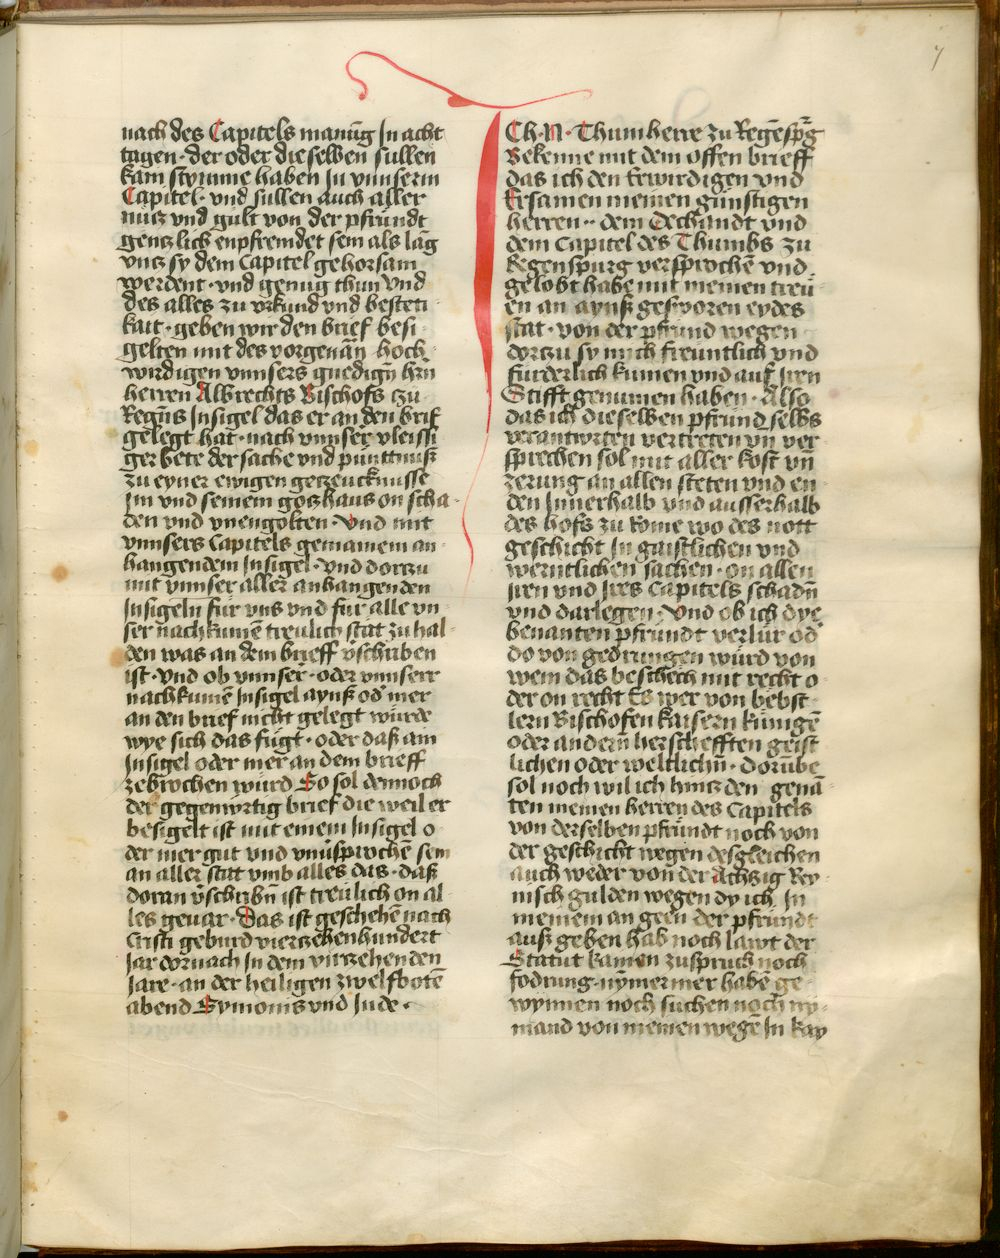 7
nach des Capitels manūg Jn acht
tagen · der oder die selben sullen
kain stymme haben Jn vnnserm
Capitel · vnd sullen auch aller
nutz vnd gült von der pfründt
gentzlich enpfremdet sein als lāg
vntz sy dem Capitel gehorsam
werdent · vnd genug thun Vnd
des alles zu vrkund vnd besteti
kait · geben wir den brief besi
gelten mit des vorgenān hoch
wirdigen vnnsers gnedign hrn
herren Albrechts Bischofs tzu
Regn̄s Jnsigel das er an den brif
gelegt hat · nach vnnser vleissi
ger bete der sache vnd punttnuß
zu eyner ewigen getzeucknusse
Jm vnd seinem gotzhaus on scha
den vnd vnengolten · Vnd mit
vnnsers Capitels gemainem an
hangendem Jnsigel · vnd dortzu
mit vnnser aller anhangenden
Jnsigeln für vns vnd für alle vn
ser nachkumē treulich stat zu hal
den was an dem brieff v̄schriben
ist · vnd ob vnnser · oder vnnserr
nachkumē Jnsigel aynß od mer
an den brief nicht gelegt würde
wye sich das fügt · oder daß ain
Jnsigel oder mer an dem brieff
zebrochen würd So sol dennoch
der gegenwrtig brief die weil er
besigelt ist mit einem Jnsigel o
der mer gut vnd vnūsprochē sein
an aller stat vmb alles das · daß
doran v̄schribn̄ ist treulich on al
les geuar · Das ist geschehē nach
Cristi geburd viertzehenhundert
Jar dornach Jn dem virtzehenden
Jare · an der heiligen zwelfbotē
abend Symonis vnd Jude ·
ICh · N · Thumherre zu Regēspr̄g
Bekenne mit dem offen brieff
das ich den Erwirdigen vnd
Ersamen meinen günstigen
herren ·· dem Dechandt vnd
dem Capitel des Thumbs zu
Regenspurg versprochē vnd
gelobt habe mit meinen treü
en an aynß gesworen eydes
stat · von der pfrund wegen
dortzu sy mich freuntlich vnd
fürderlich kumen vnd auf Jren
Stifft genumen haben · Also
das ich dieselben pfründ selbs
verantwrten vertreten vn̄ ver
sprechen sol mit aller kost vn̄
zerung an allen steten vnd en
den Jnnerhalb vnd ausserhalb
des hofs zu Rome wo des nott
geschicht Jn gaistlichen vnd
werntlichen sachen · on allen
Jren vnd Jres Capitels schadn̄
vnd darlegen · Vnd ob ich dye
benanten pfründt verlür od
do von gedrungen würd von
wem das beschech mit recht o
der on recht Es wer von bebst
lern Bischofen kaisern künigē
oder andern herschefften geist
lichen oder weltlichn̄ · dorūbe
sol noch wil ich hintz den genā
ten meinen herren des Capitels
von derselben pfründt noch von
der geschicht wegen desgleichen
auch weder von der Achtzig Rey
nisch gulden wegen dy ich Jn
meinem an geen der pfründt
auß geben hab noch lawt der
Statut kainen zuspruch noch
fodrung · nymermer habē ge
wynnen noch suchen noch ny
mand von meinen wegē Jn kay